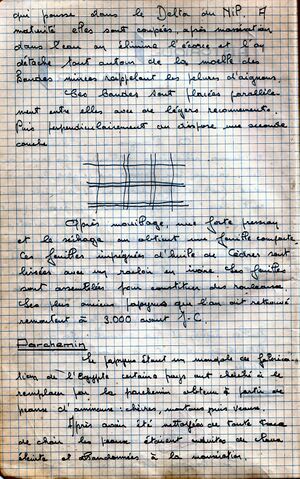 qui pousse dans le Delta du Nil. A
maturité elles sont coupées, après macération
dans l'eau on élimine l'écorce et l'on
détache tout autour de la moelle des
bandes minces rappelant les pelures d'oignons.
Ces bandes sont placées parallèle-
ment entre elles avec de légers recouvrements.
Puis perpendiculairement on dispose une seconde
couche
Après mouillage, une forte pression
et le séchage on obtient une feuille compacte.
Ces feuilles imprégnées d'huile de Cèdres sont
lissées avec un racloir en ivoire. Les feuilles
sont assemblées pour constituer des rouleaux.
Les plus anciens papyrus que l'on ait retrouvé
remontent à 3.000 avant J-C.
Parchemin
Le papyrus étant un monopole de fabrica-
tion de l'Egypte certains pays ont cherché à le
remplacer par le parchemin obtenu à partir de
peaux d'animaux : chèvres, moutons puis veaux.
Après avoir été nettoyées de toute trace
de chair les peaux étaient enduites de chaux
éteinte et abandonnées à la macération.